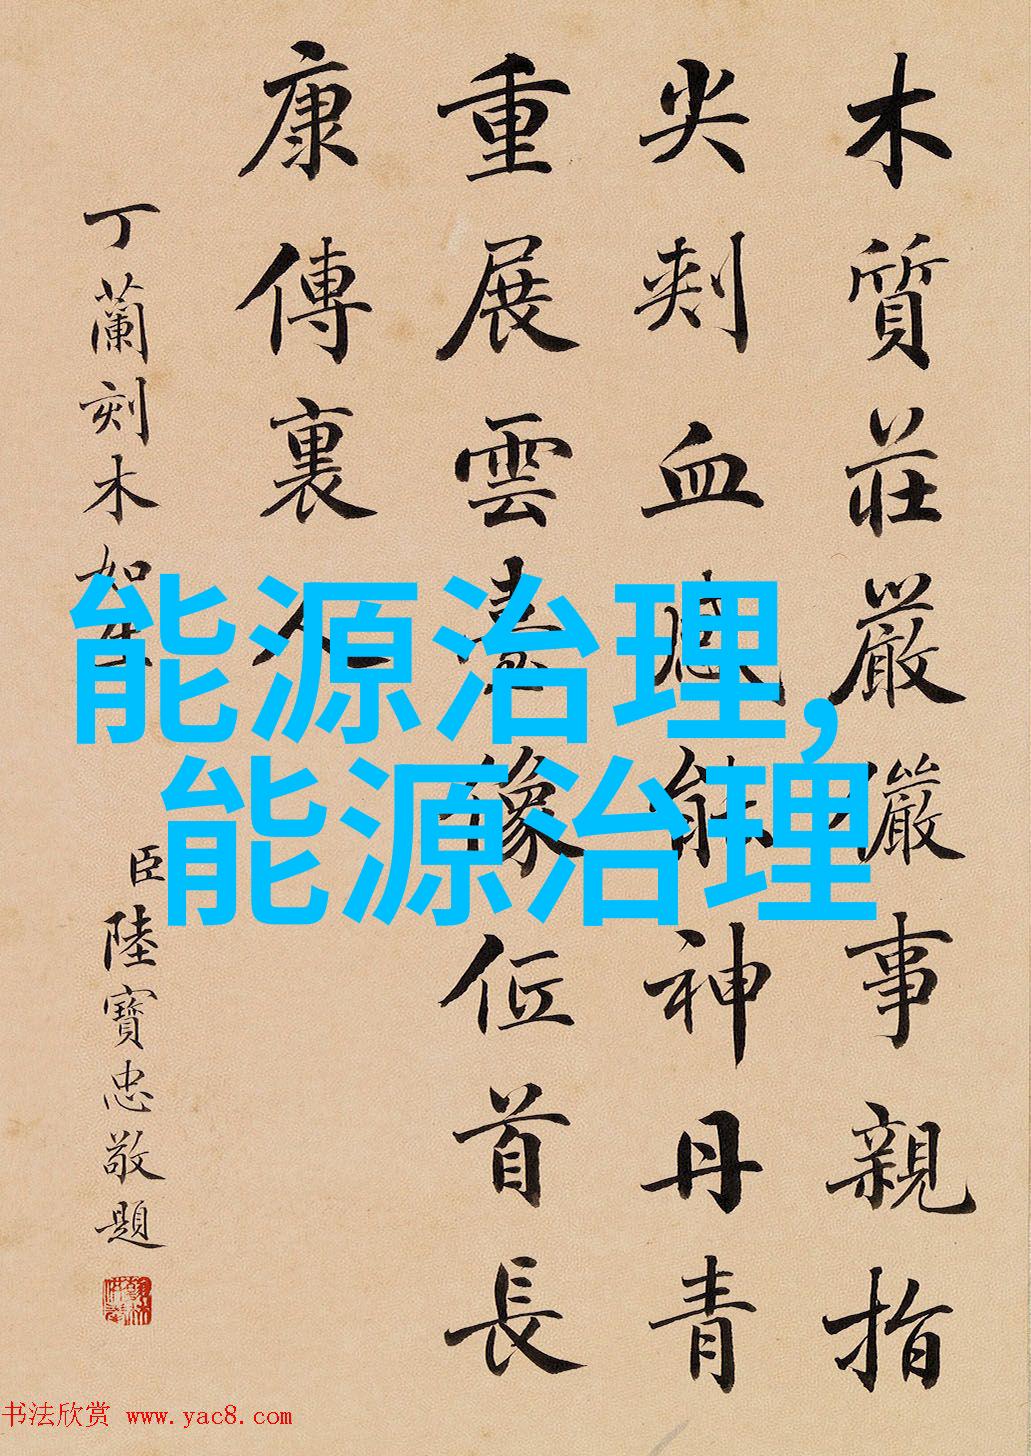 木質莊嚴儼事親指
尖刾血感能神丹青
重展雲臺像位首長
康傳裏人
丁蘭刻木如生
臣陸寶忠敬題
能源治理,
能源治理
书法欣赏 www.yac8.com